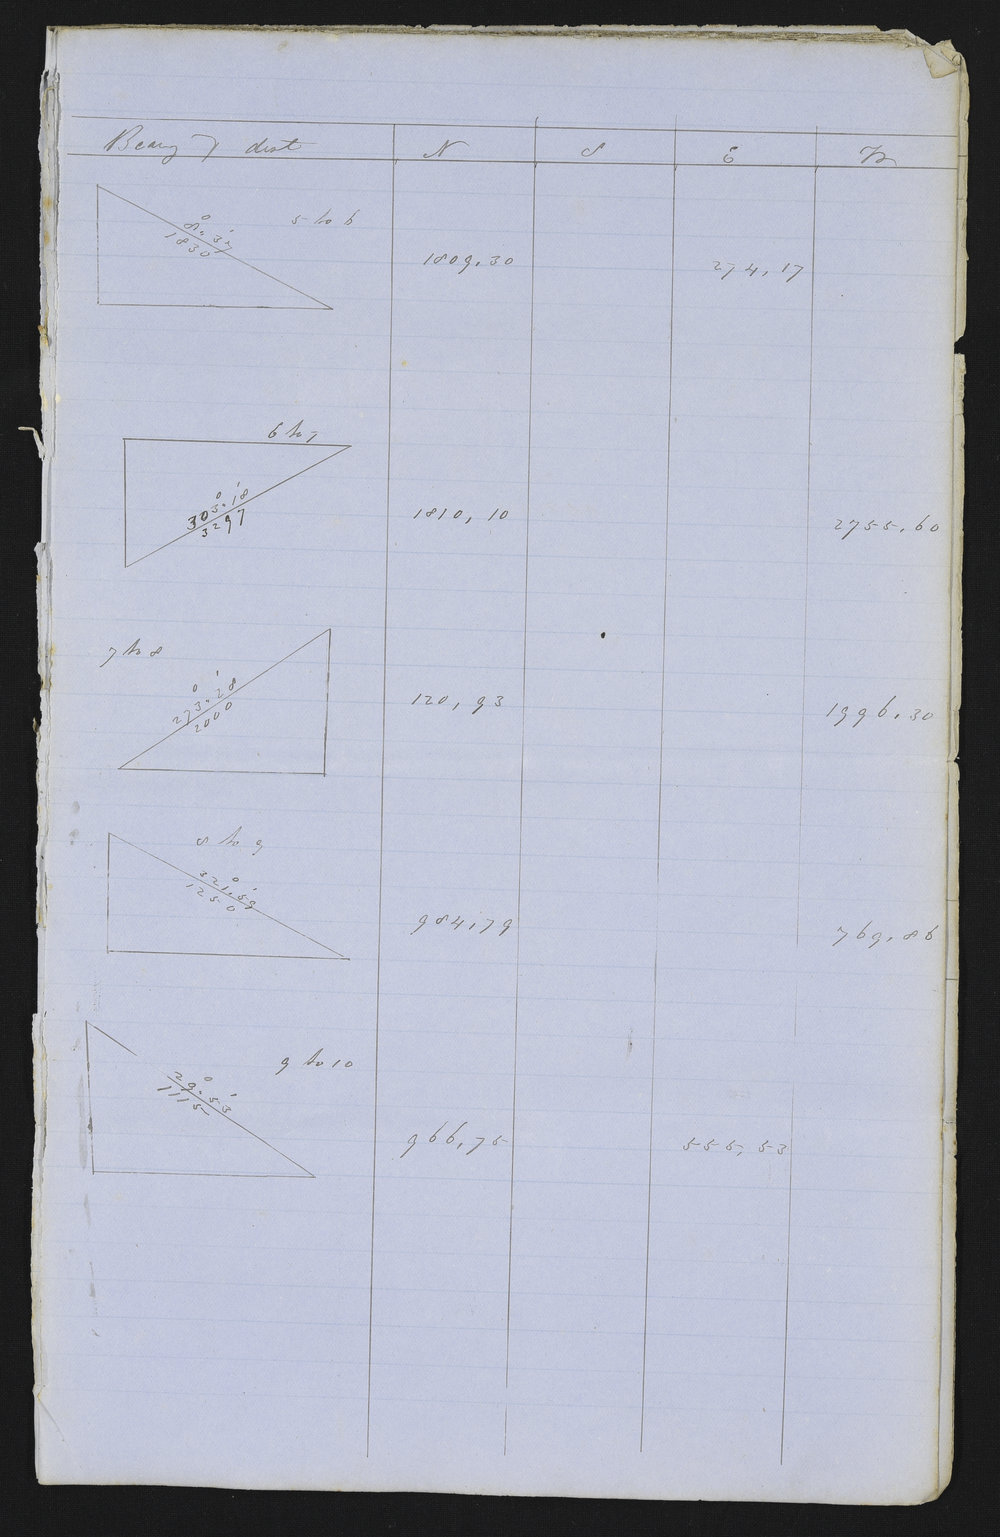 Bearg & dist N S E W
5 to 6
8°.37'
1830
1809.30 274.17
6 to 7
303°.18'
3297
1810.10 2755.60
7 to 8
273°.28'
2000
120.93 1996.30
8 to 9
321°.59'
1250
984.79 769.86
9 to 10
29°.53'
1115
966.75 555.53